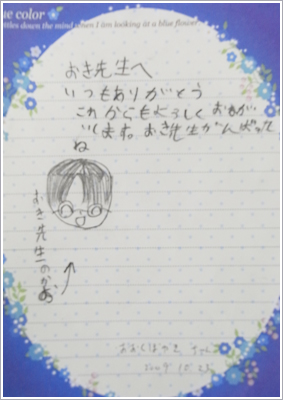 ue color
ettles down the mind when I am looking at a blue flower
おき先生へ
いつもありがとう
これからもよろしくおねが
いします。おき先生がんばって
ね
おき先生のかお